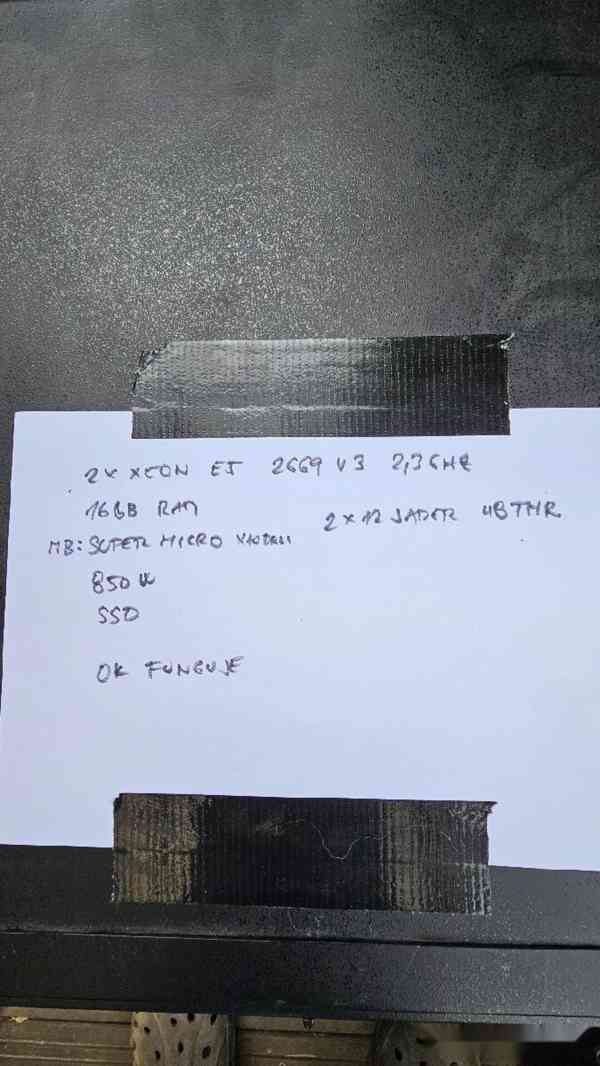 2x XEON E5 2669 V3 2,3GHZ
16GB RAM
2x12 JADER 48THR
MB: SUPER MICRO
850W
SSD
OK FUNGUJE